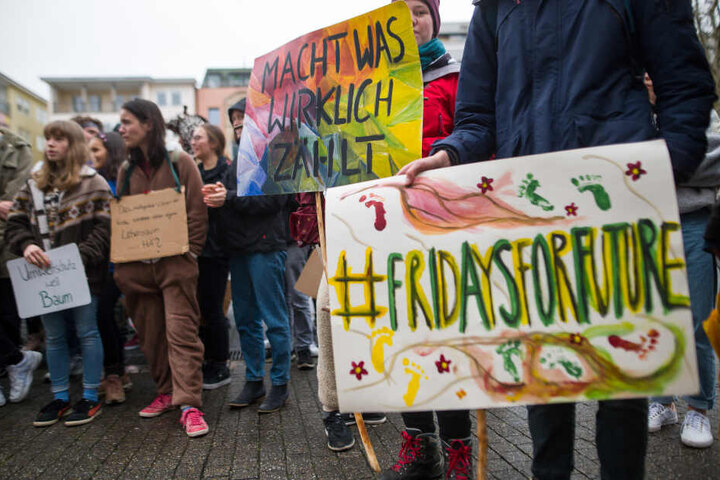 MACHT WAS
WIRKLICH
ZÄHLT
#FRIDAYSFORFUTURE
Umweltschutz
weil
Baum
HAT?